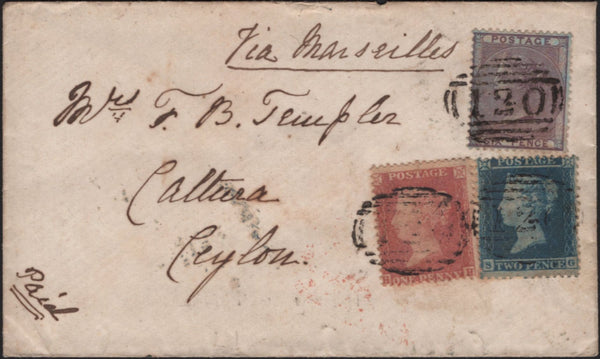 Via Marseilles
Mrs F. B. Templer
Caltura
Ceylon.
Paid
POSTAGE
120
SIX PENCE
POSTAGE
ONE PENNY
POSTAGE
S TWO PENCE G